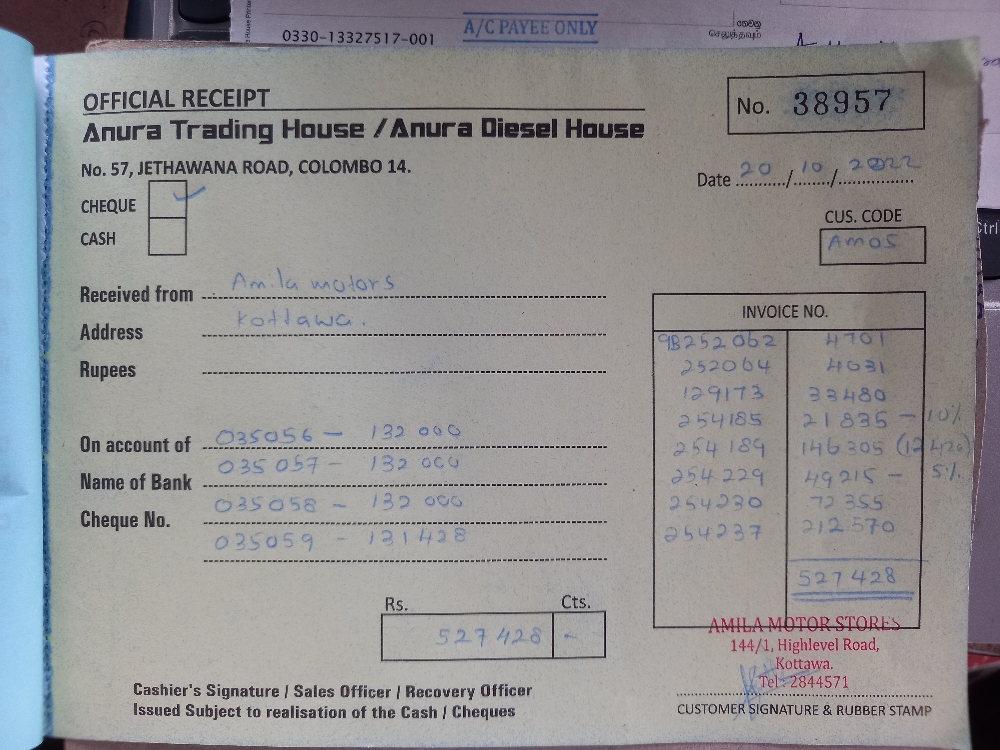 0330-13327517-001
A/C PAYEE ONLY
செலுத்தவும்
OFFICIAL RECEIPT
No. 38957
Anura Trading House / Anura Diesel House
No. 57, JETHAWANA ROAD, COLOMBO 14.
Date 20/10/2022
CHEQUE ✓
CASH
CUS. CODE
AM05
Received from Amila motors
Address Kottawa.
Rupees
On account of 035056 - 132 000
Name of Bank 035 057 - 132 000
Cheque No. 035058 - 132 000
035059 - 131428
INVOICE NO.
9B252062 4701
252064 4031
129173 33480
254185 21835 - 10%
254189 146305 (12420)
254229 49215 - 5%
254230 72355
254237 212570
527428
Rs. Cts.
527428 -
AMILA MOTOR STORES
144/1, Highlevel Road,
Kottawa.
Tel: 2844571
Cashier's Signature / Sales Officer / Recovery Officer
Issued Subject to realisation of the Cash / Cheques
CUSTOMER SIGNATURE & RUBBER STAMP
Ctrl